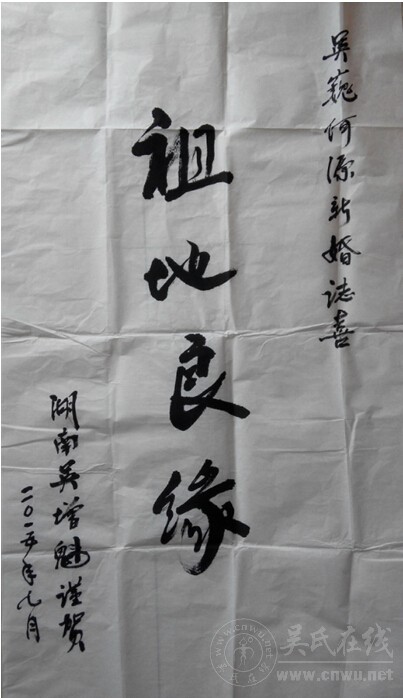 吴巍何源新婚誌喜
祖地良缘
湖南吴增魁谨贺
二〇一五年九月
吴氏在线
www.cnwu.net